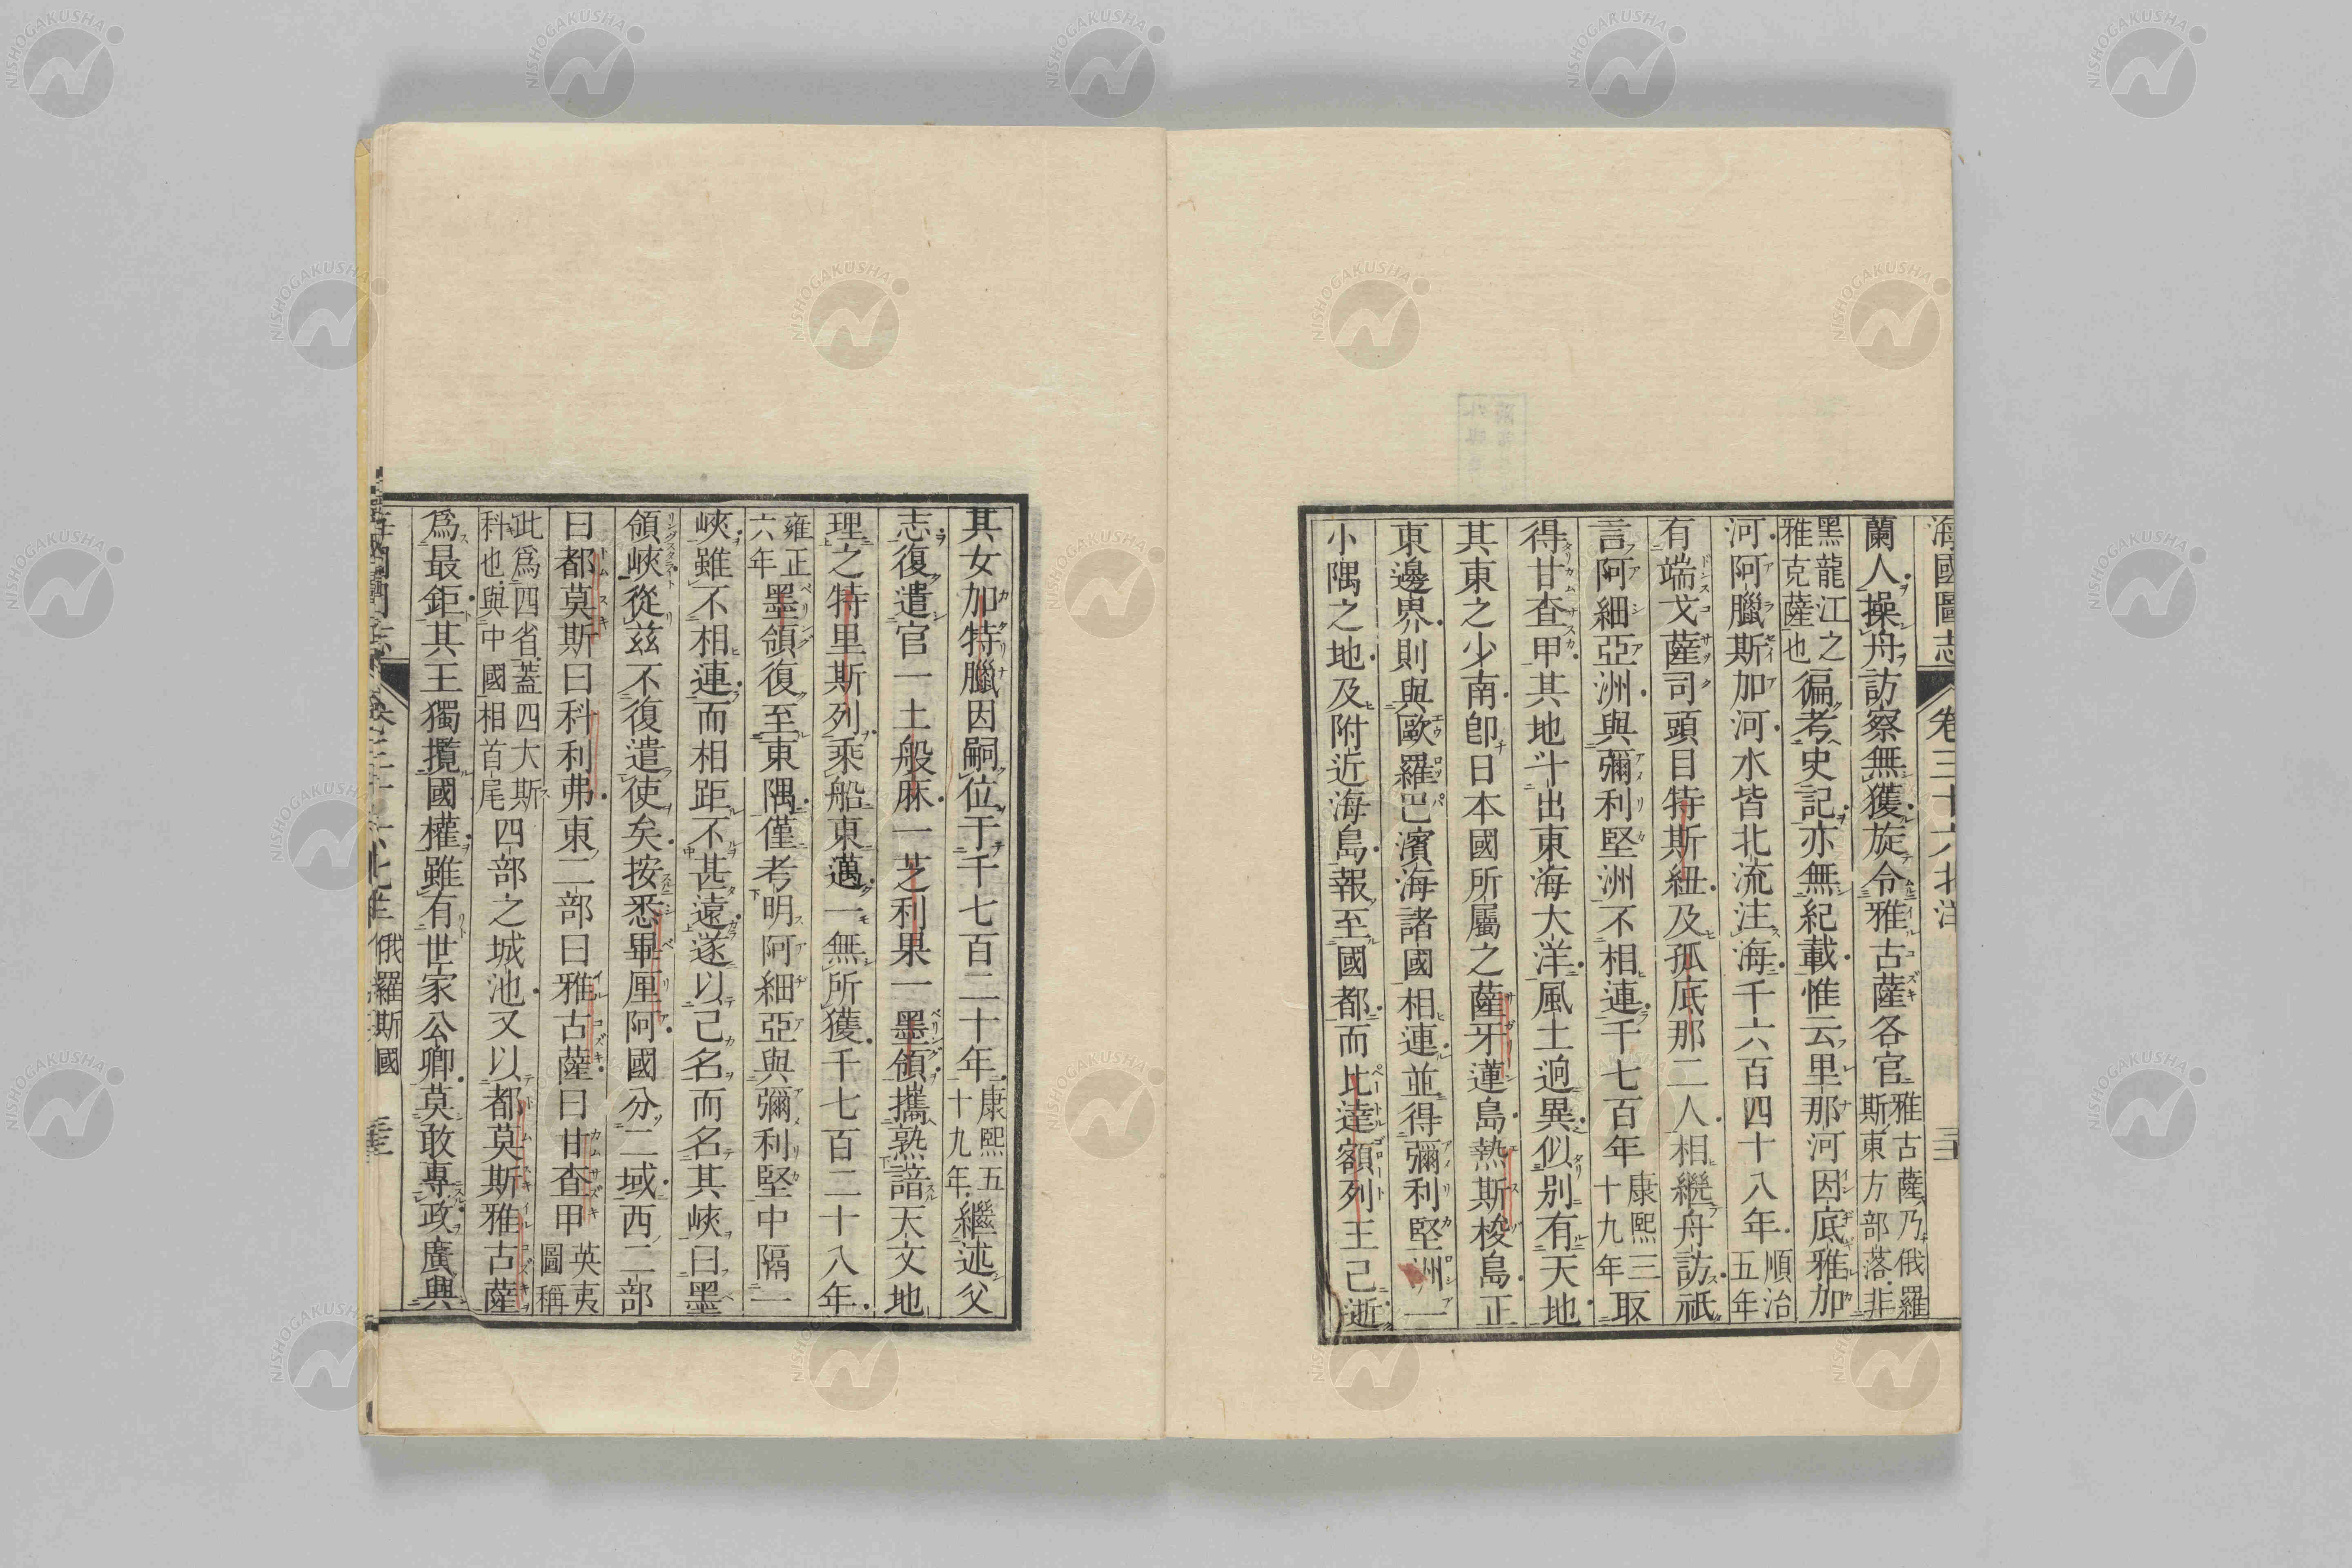 海國圖志 卷三十六 北洋
蘭人操舟訪察無獲旋令雅古薩各官雅古薩乃俄羅斯東方部落非
黑龍江之雅克薩也徧考史記亦無紀載惟云里那河因底雅加
河阿臘斯加河水皆北流注海千六百四十八年順治五年
有端戈薩司頭目特斯紐及孤底那二人相繼舟訪祇
言阿細亞洲與彌利堅洲不相連千七百年康熙三十九年取
得甘查甲其地斗出東海大洋風土迥異似別有天地
其東之少南卽日本國所屬之薩牙蓮島熱斯梭島正
東邊界則與歐羅巴濱海諸國相連並得彌利堅洲一
小隅之地及附近海島報至國都而比達額列王已逝
其女加特臘因嗣位于千七百二十年康熙五十九年繼述父
志復遣官一土般庥一芝利果一墨領攜熟諳天文地
理之特里斯列乘船東邁一無所獲千七百二十八年
雍正六年墨領復至東隅僅考明阿細亞與彌利堅中隔一
峽雖不相連而相距不甚遠遂以己名而名其峽曰墨
領峽從茲不復遣使矣按悉畢厘阿國分二域西二部
曰都莫斯曰科利弗東二部曰雅古薩曰甘查甲英夷圖稱
此爲四省蓋四大斯科也與中國相首尾四部之城池又以都莫斯雅古薩
爲最鉅其王獨攬國權雖有世家公卿莫敢專政廣興
俄羅斯國
NISHOGAKUSHA